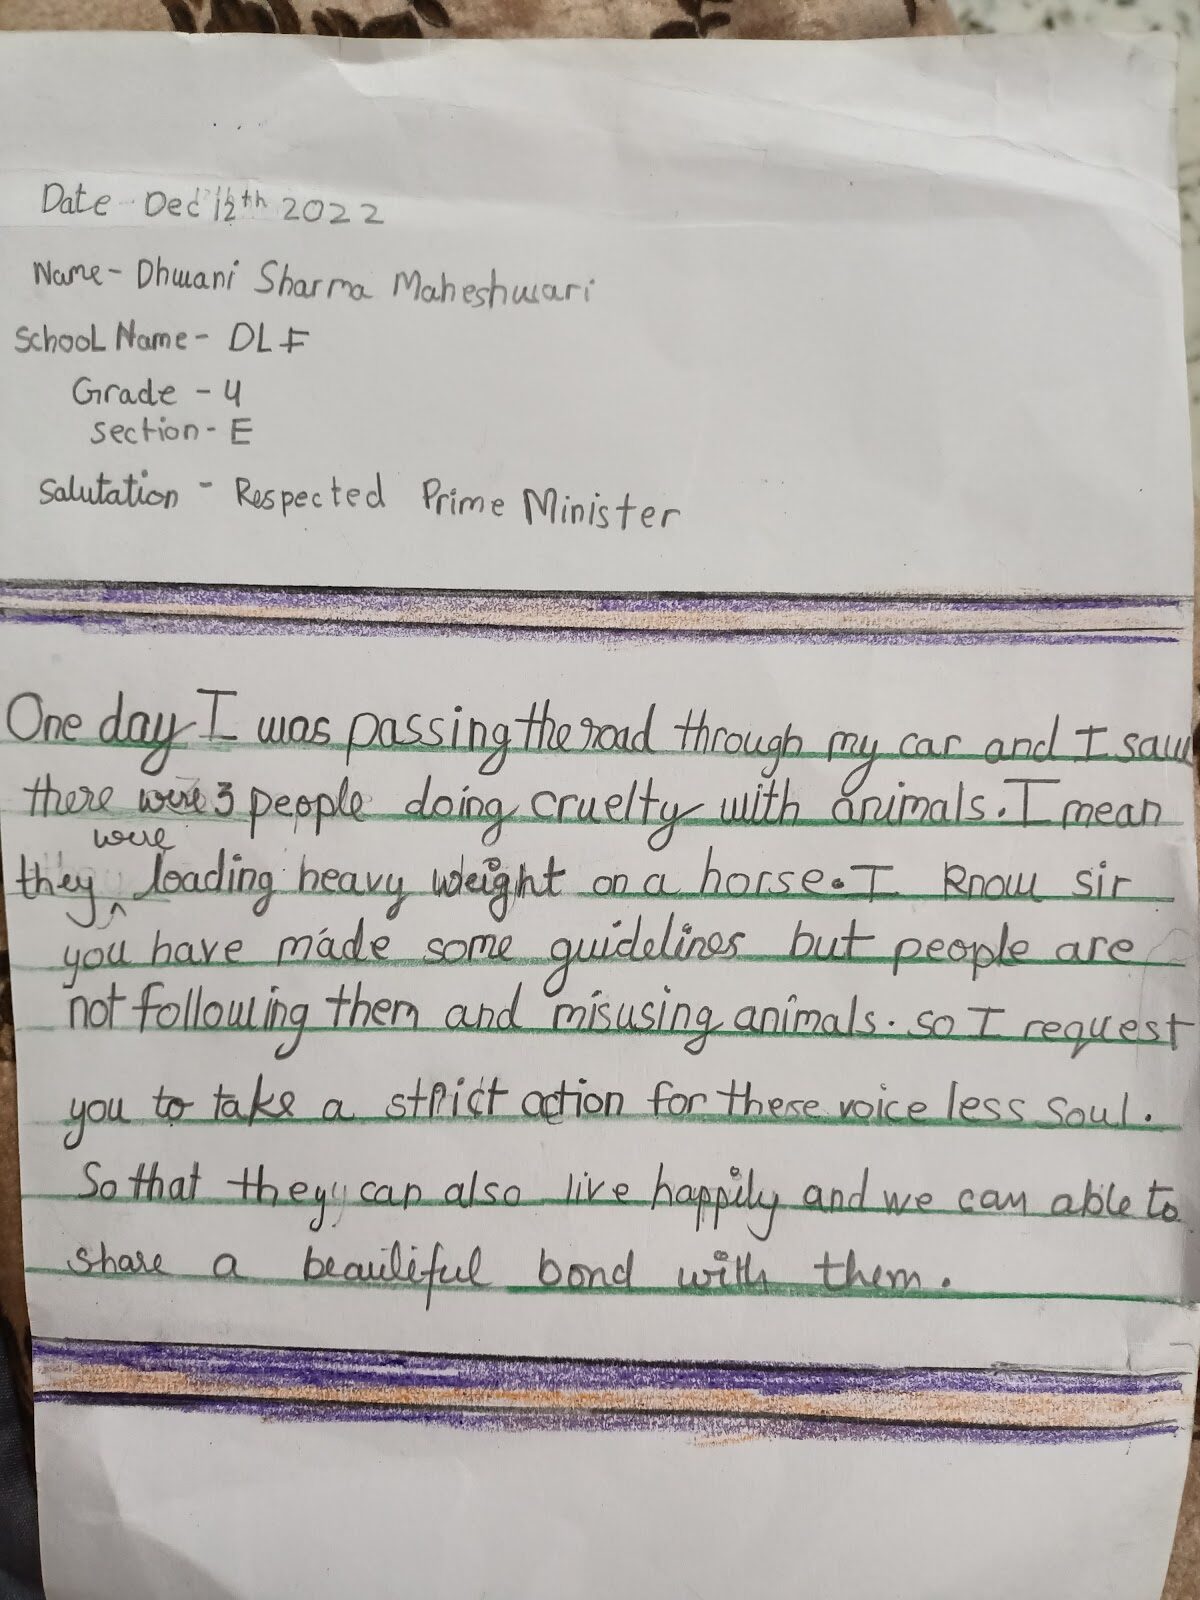 Date - Dec 12th 2022
Name - Dhwani Sharma Maheshwari
School Name - DLF
Grade - 4
Section - E
Salutation - Respected Prime Minister
One day I was passing the road through my car and I saw
there were 3 people doing cruelty with animals. I mean
were
they ^ loading heavy weight on a horse. I know sir
you have made some guidelines but people are
not following them and misusing animals. so I request
you to take a strict action for these voice less soul.
So that they can also live happily and we can able to
share a beautiful bond with them.